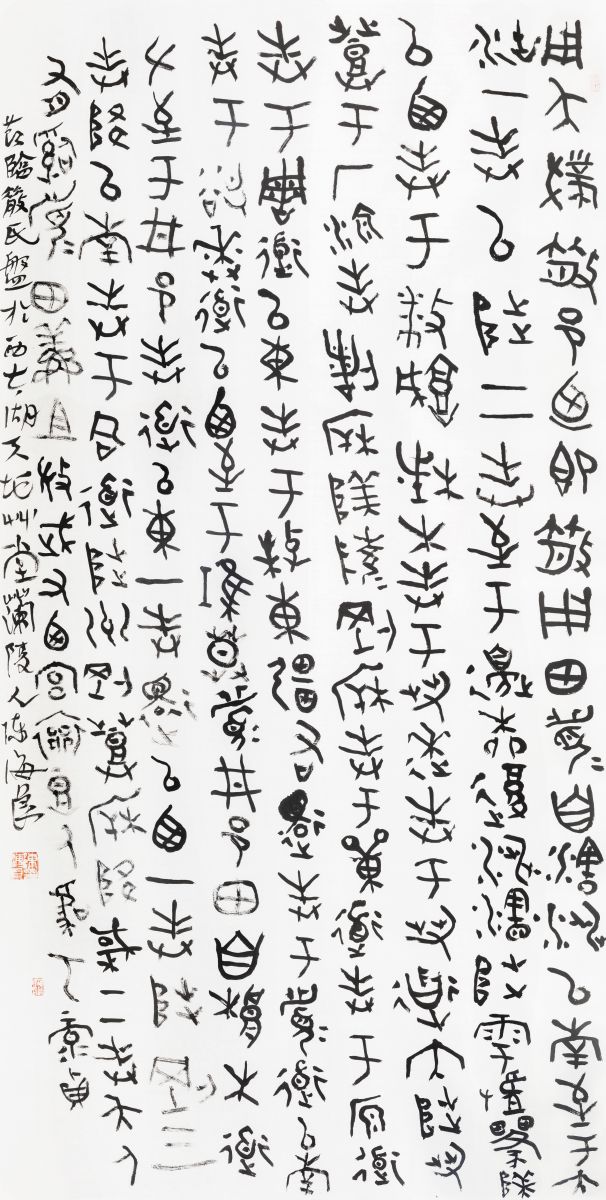 用夨撲散邑廼即散用田眉自瀗涉以南至于大
沽一奉以陟二奉至于邊柳復涉瀗陟雩
以西奉于播城楮木奉于芻逨奉于芻道內陟芻
登于厂湶奉諸㭒陵剛㭒奉于道奉于原道
奉于周道以東奉于東疆右還奉于眉道以南
奉于逨道以西至于莫眉井邑田自桹木道
左至于井邑奉道以東一奉還以西一奉陟剛三
奉降以南奉于同道陟州剛登㭒降棫二奉夨人
有司眉田鮮且微武父西宮襄豆人虞丂彔貞
節臨散氏盤於西太湖天地草堂蘭陵人陳海良